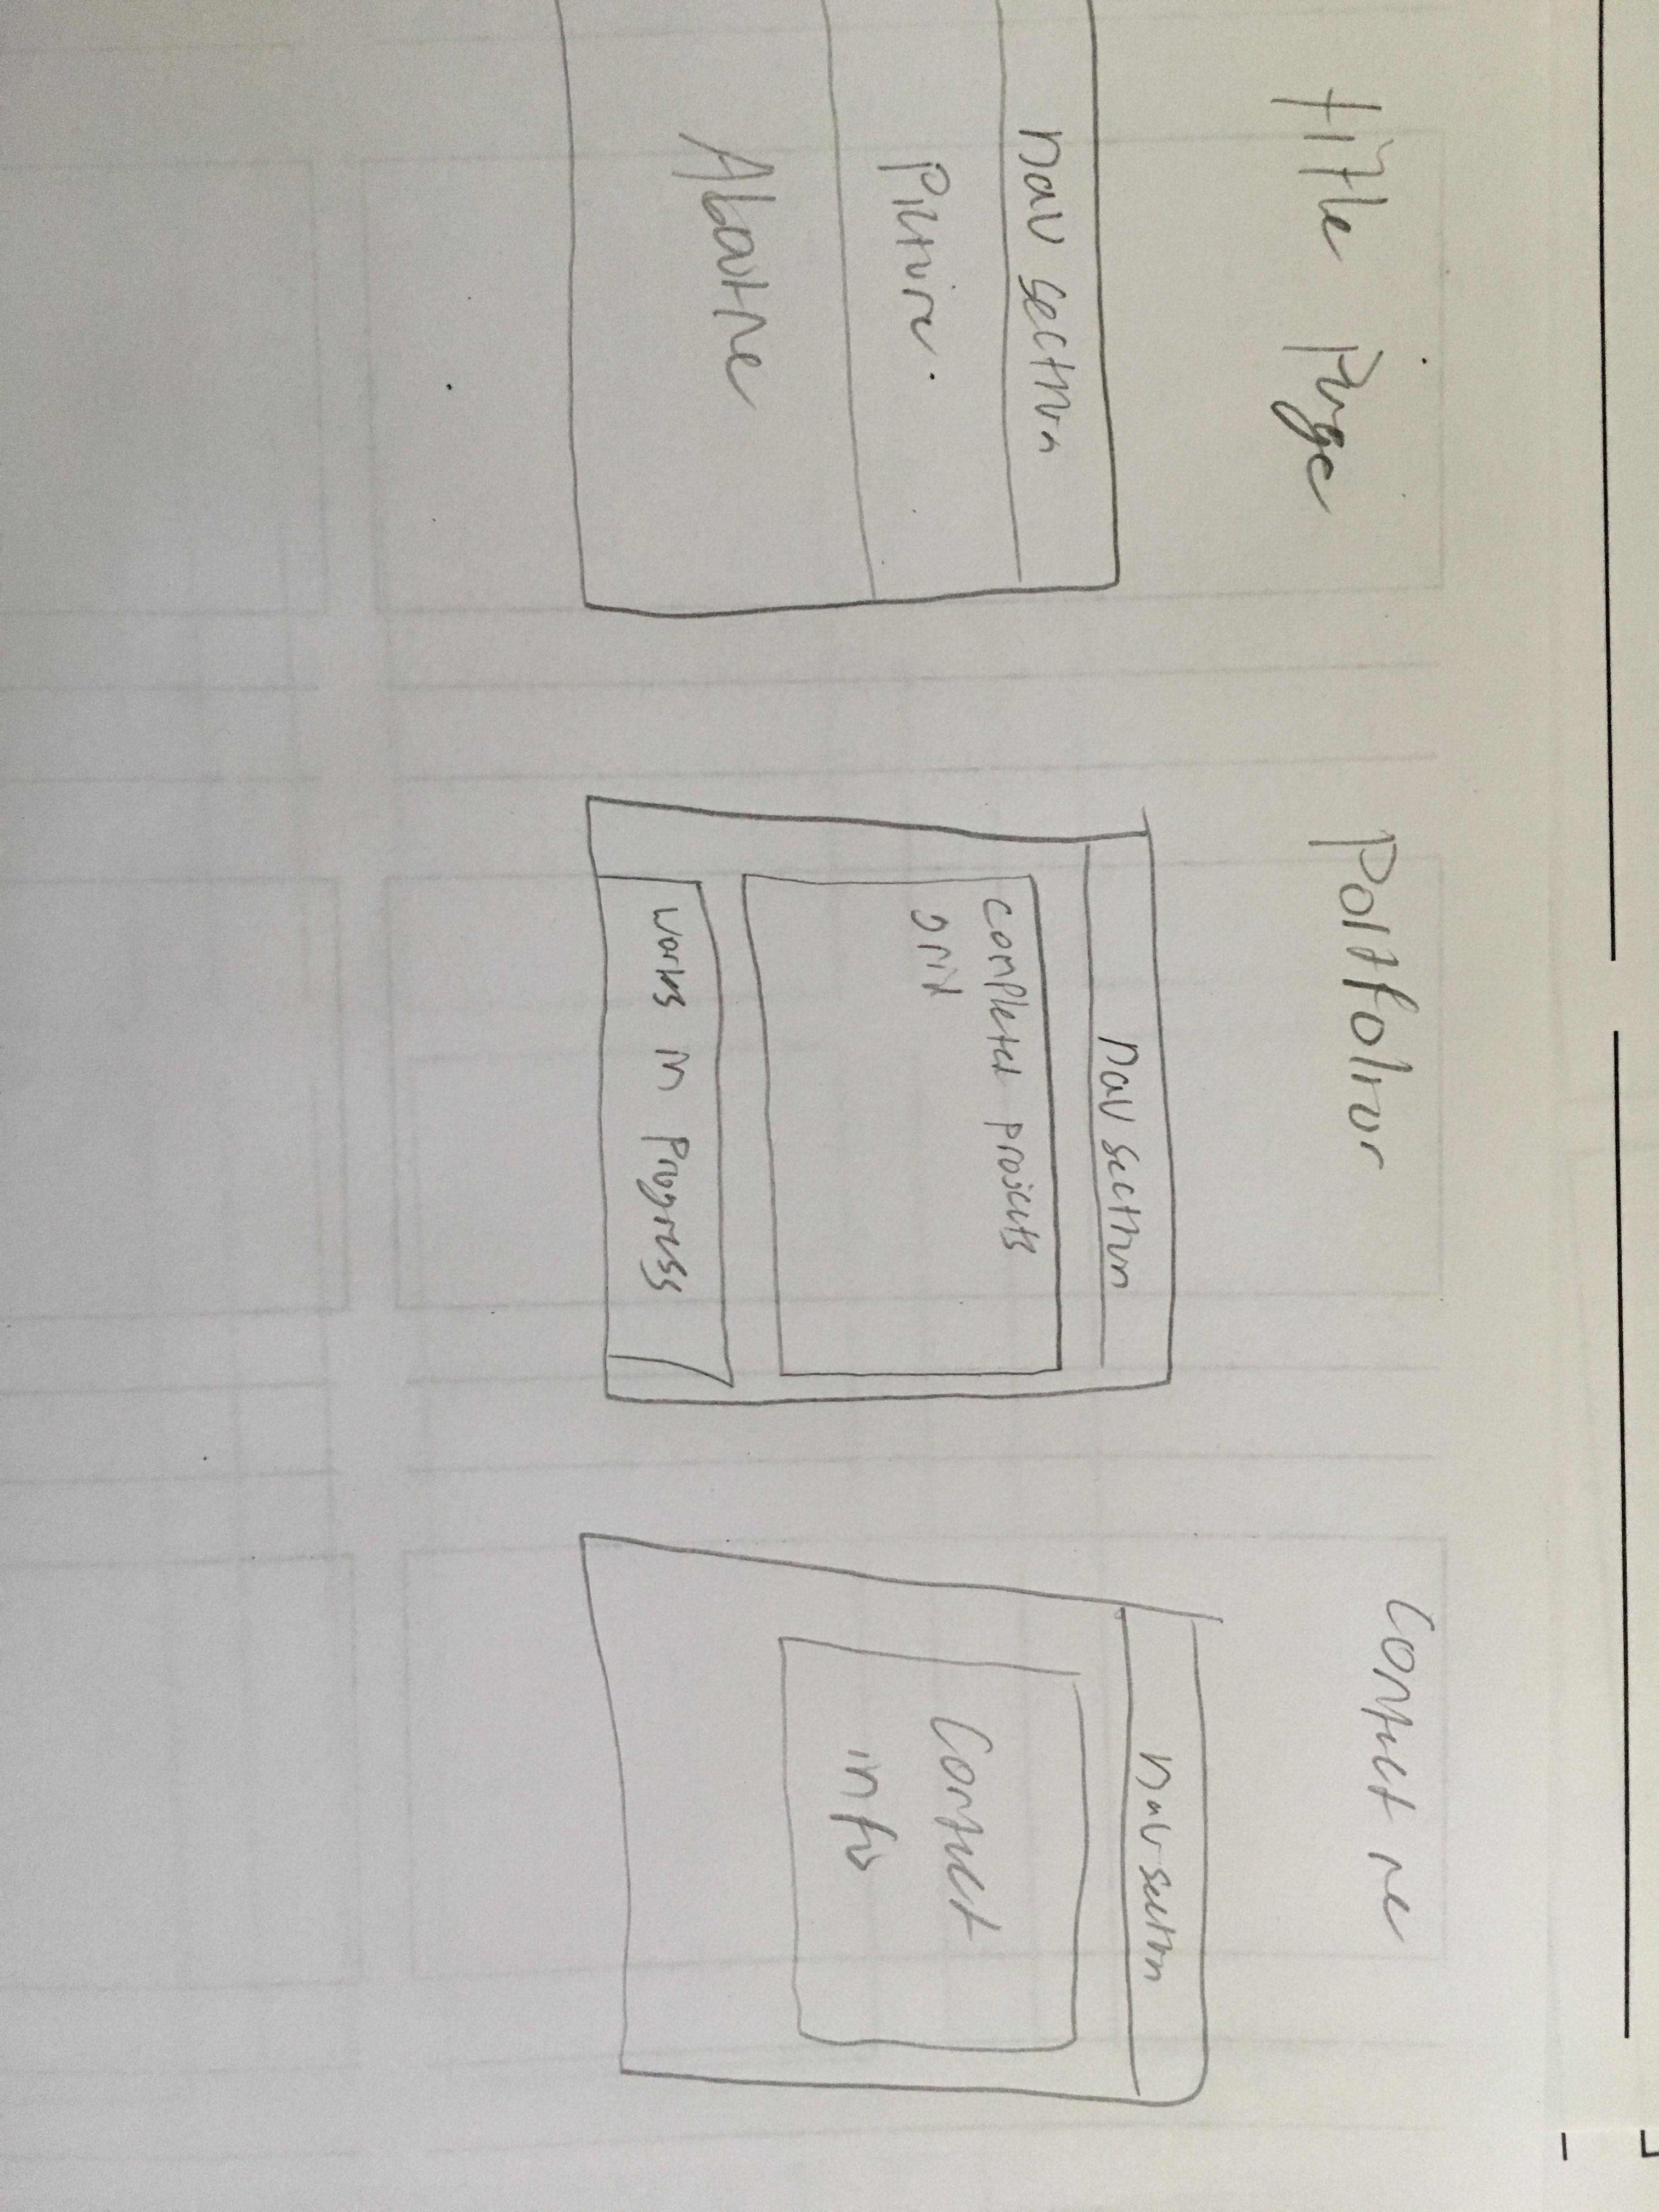 title Page
nav section
Picture
About me
Portfolio
nav section
completed projects
grid
works in Progress
Contact me
nav section
Contact
info